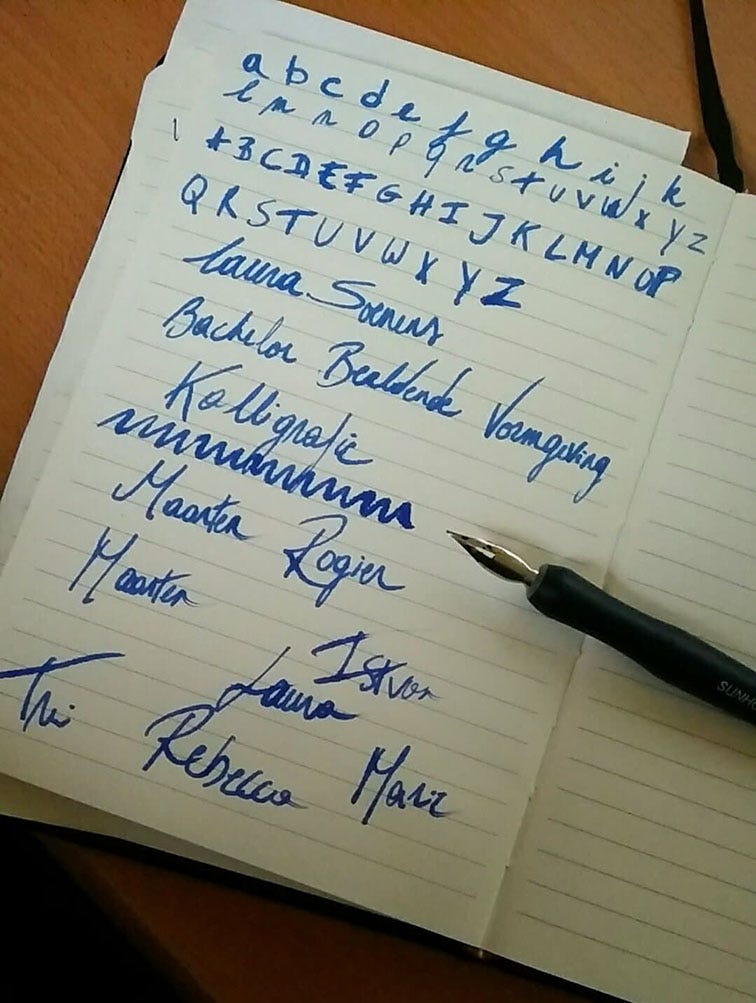 a b c d e f g h i j k
l m n o p q r s t u v w x y z
A B C D E F G H I J K L M N O P
Q R S T U V W X Y Z
Laura Soenens
Bachelor Beeldende Vormgeving
Kalligrafie
Maarten Rogier
Maarten
Istvan
Laura
Thi
Rebecca Marie